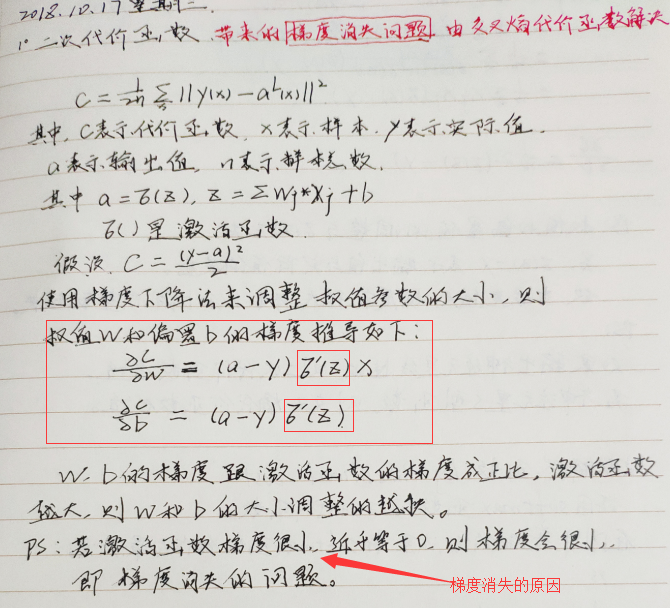 2018.10.17 星期三.
1° 二次代价函数 带来的梯度消失问题 由交叉熵代价函数解决
C = \frac{1}{2n} \sum_x ||y(x) - a^L(x)||^2
其中, C表示代价函数. x表示样本. y表示实际值.
a表示输出值, n表示样本总数.
其中 a=σ(z), z = ΣWj*Xj + b
σ() 是激活函数.
假设 C = \frac{(y-a)^2}{2}
使用梯度下降法来调整权值参数的大小, 则
权值W和偏置b的梯度推导如下:
\frac{∂C}{∂W} = (a-y) σ'(z) x
\frac{∂C}{∂b} = (a-y) σ'(z)
W、b的梯度跟激活函数的梯度成正比, 激活函数
越大, 则W和b的大小调整的越快。
PS: 若激活函数梯度很小, 近乎等于0, 则梯度会很小.
即梯度消失的问题。
梯度消失的原因